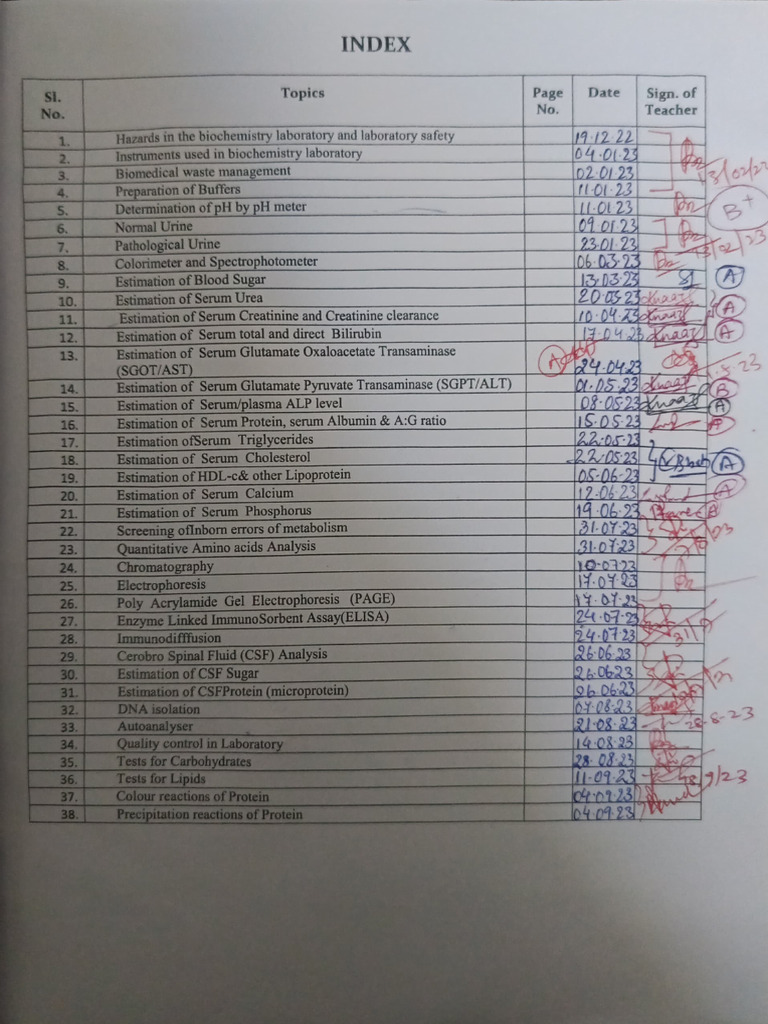 INDEX
Sl. No. Topics Page No. Date Sign. of Teacher
1. Hazards in the biochemistry laboratory and laboratory safety 19.12.22
2. Instruments used in biochemistry laboratory 04.01.23
3. Biomedical waste management 02.01.23
4. Preparation of Buffers 11.01.23
5. Determination of pH by pH meter 11.01.23 B+
6. Normal Urine 09.01.23
7. Pathological Urine 23.01.23
8. Colorimeter and Spectrophotometer 06.03.23
9. Estimation of Blood Sugar 13.03.23 A
10. Estimation of Serum Urea 20.03.23
11. Estimation of Serum Creatinine and Creatinine clearance 10.04.23 A
12. Estimation of Serum total and direct Bilirubin 17.04.23 A
13. Estimation of Serum Glutamate Oxaloacetate Transaminase
(SGOT/AST) A 24.04.23
14. Estimation of Serum Glutamate Pyruvate Transaminase (SGPT/ALT) 01.05.23 B
15. Estimation of Serum/plasma ALP level 08.05.23 A
16. Estimation of Serum Protein, serum Albumin & A:G ratio 15.05.23 A
17. Estimation ofSerum Triglycerides 22.05.23
18. Estimation of Serum Cholesterol 22.05.23 A
19. Estimation of HDL-c& other Lipoprotein 05.06.23
20. Estimation of Serum Calcium 12.06.23 A
21. Estimation of Serum Phosphorus 19.06.23 A
22. Screening ofInborn errors of metabolism 31.07.23
23. Quantitative Amino acids Analysis 31.07.23
24. Chromatography 10.0723
25. Electrophoresis 17.07.23
26. Poly Acrylamide Gel Electrophoresis (PAGE) 17.07.23
27. Enzyme Linked ImmunoSorbent Assay(ELISA) 24.07.23
28. Immunodifffusion 24.07.23
29. Cerobro Spinal Fluid (CSF) Analysis 26.06.23
30. Estimation of CSF Sugar 26.0623
31. Estimation of CSFProtein (microprotein) 26.06.23
32. DNA isolation 07.08.23
33. Autoanalyser 21.08.23 28.8.23
34. Quality control in Laboratory 14.08.23
35. Tests for Carbohydrates 28.08.23
36. Tests for Lipids 11.09.23
37. Colour reactions of Protein 04.09.23
38. Precipitation reactions of Protein 04.09.23